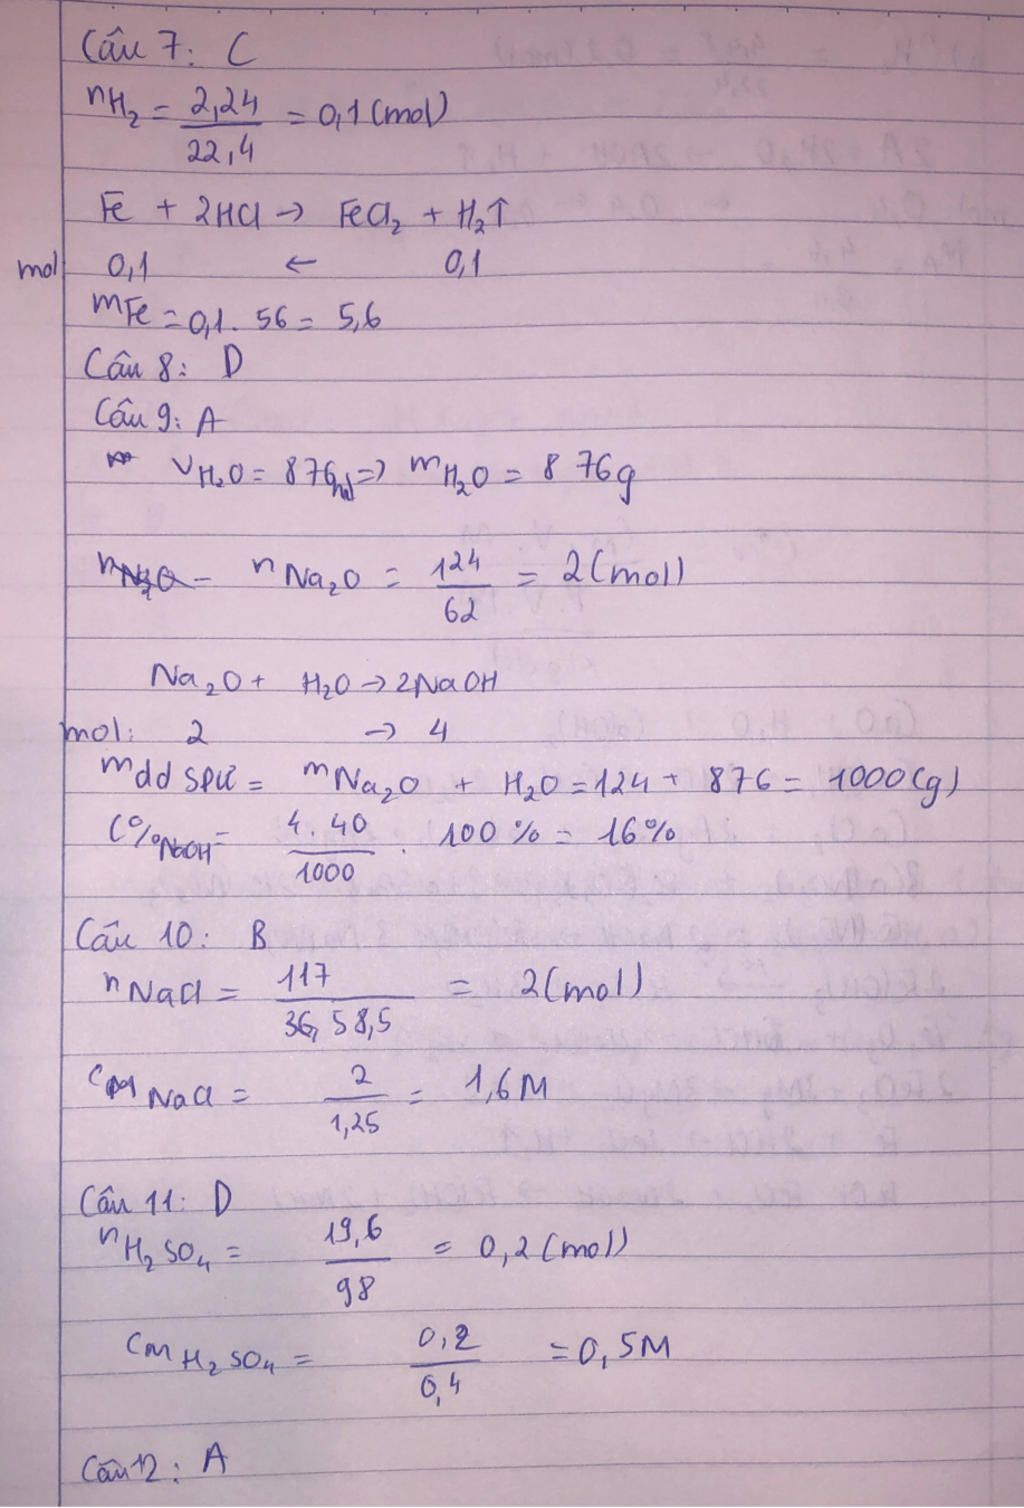 Câu 7: C
nH₂ = 2,24/22,4 = 0,1 (mol)
Fe + 2HCl → FeCl₂ + H₂↑
mol 0,1 ← 0,1
mFe = 0,1. 56 = 5,6
Câu 8: D
Câu 9: A
VH₂O = 876ml => mH₂O = 876g
nNa₂O = 124/62 = 2 (mol)
Na₂O + H₂O → 2NaOH
mol: 2 → 4
mdd spư = mNa₂O + H₂O = 124 + 876 = 1000 (g)
C%NaOH = 4.40/1000 . 100% = 16%
Câu 10: B
nNaCl = 117/58,5 = 2 (mol)
CM NaCl = 2/1,25 = 1,6M
Câu 11: D
nH₂SO₄ = 19,6/98 = 0,2 (mol)
CM H₂SO₄ = 0,2/0,4 = 0,5M
Câu 12: A